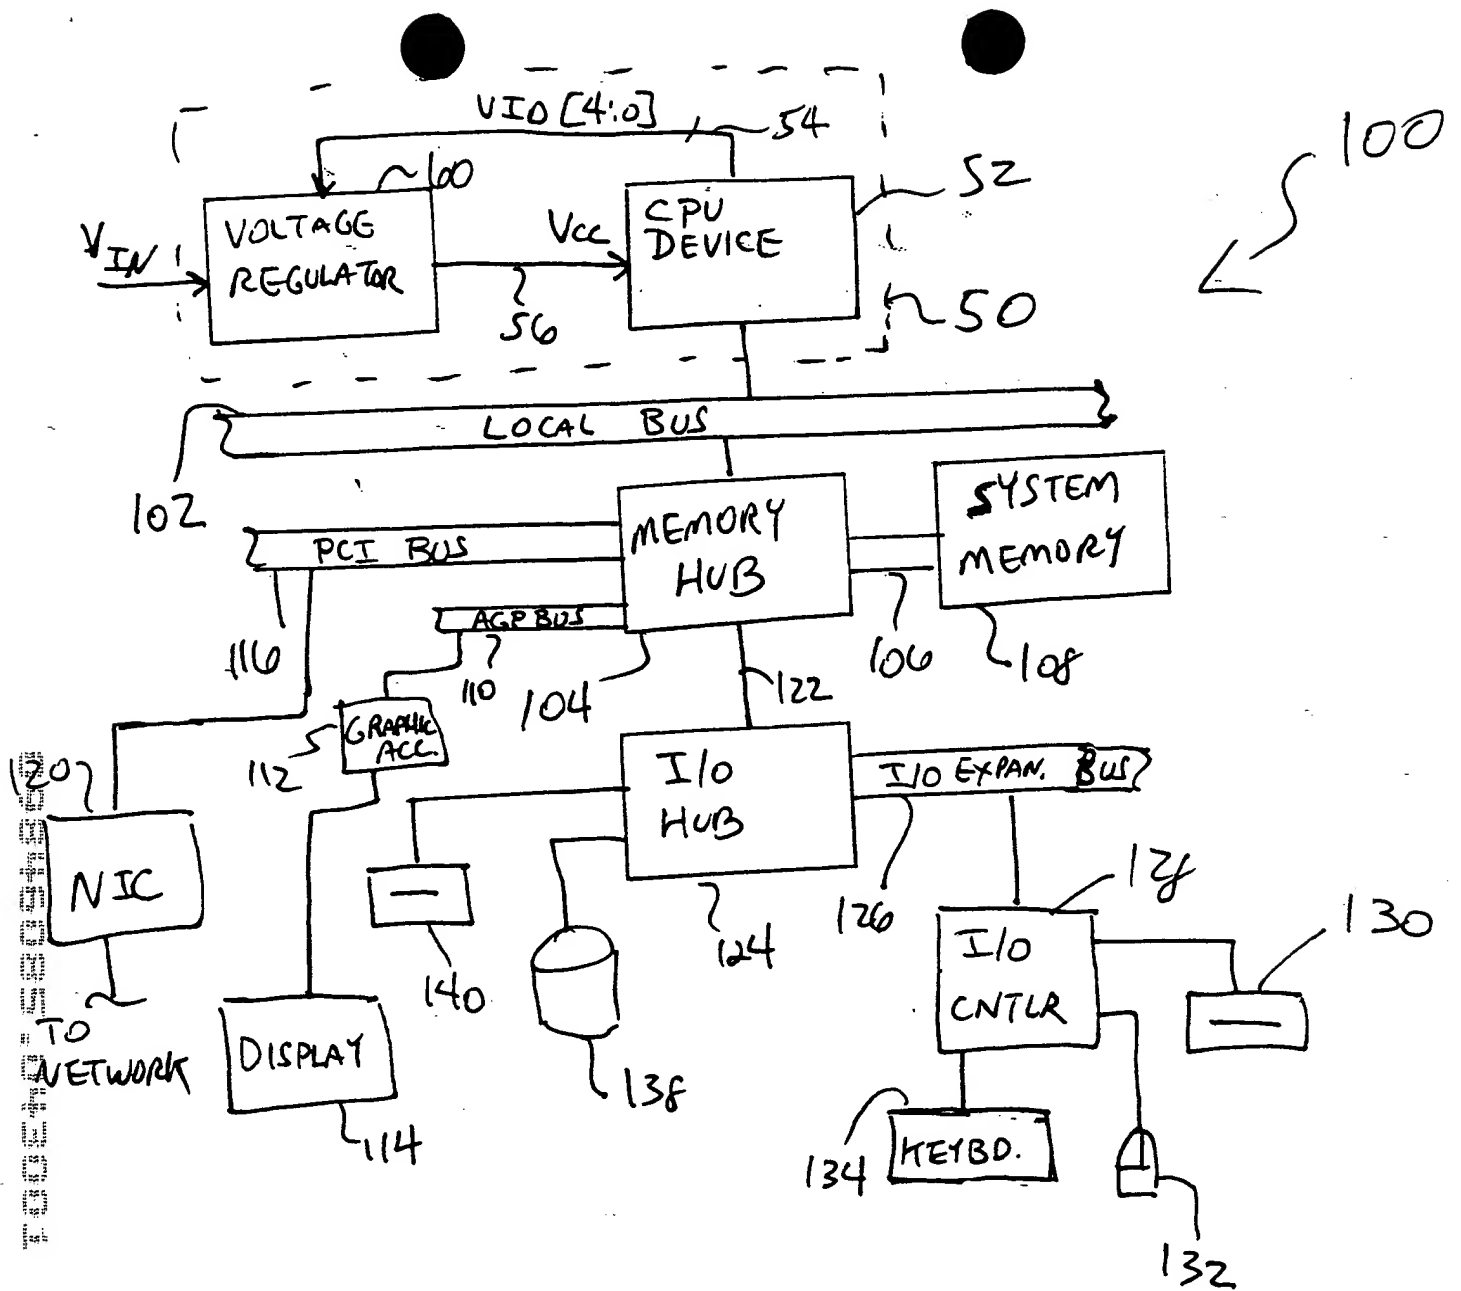 VID [4:0]
54
100
60
52
VIN
VOLTAGE
REGULATOR
Vcc
CPU
DEVICE
56
50
LOCAL BUS
102
PCI BUS
MEMORY
HUB
SYSTEM
MEMORY
AGP BUS
116
110
104
106
108
122
112
GRAPHIC
ACC.
120
I/O
HUB
I/O EXPAN. BUS
NIC
126
128
130
140
124
I/O
CNTLR
TO
NETWORK
DISPLAY
138
114
134
KEYBD.
132